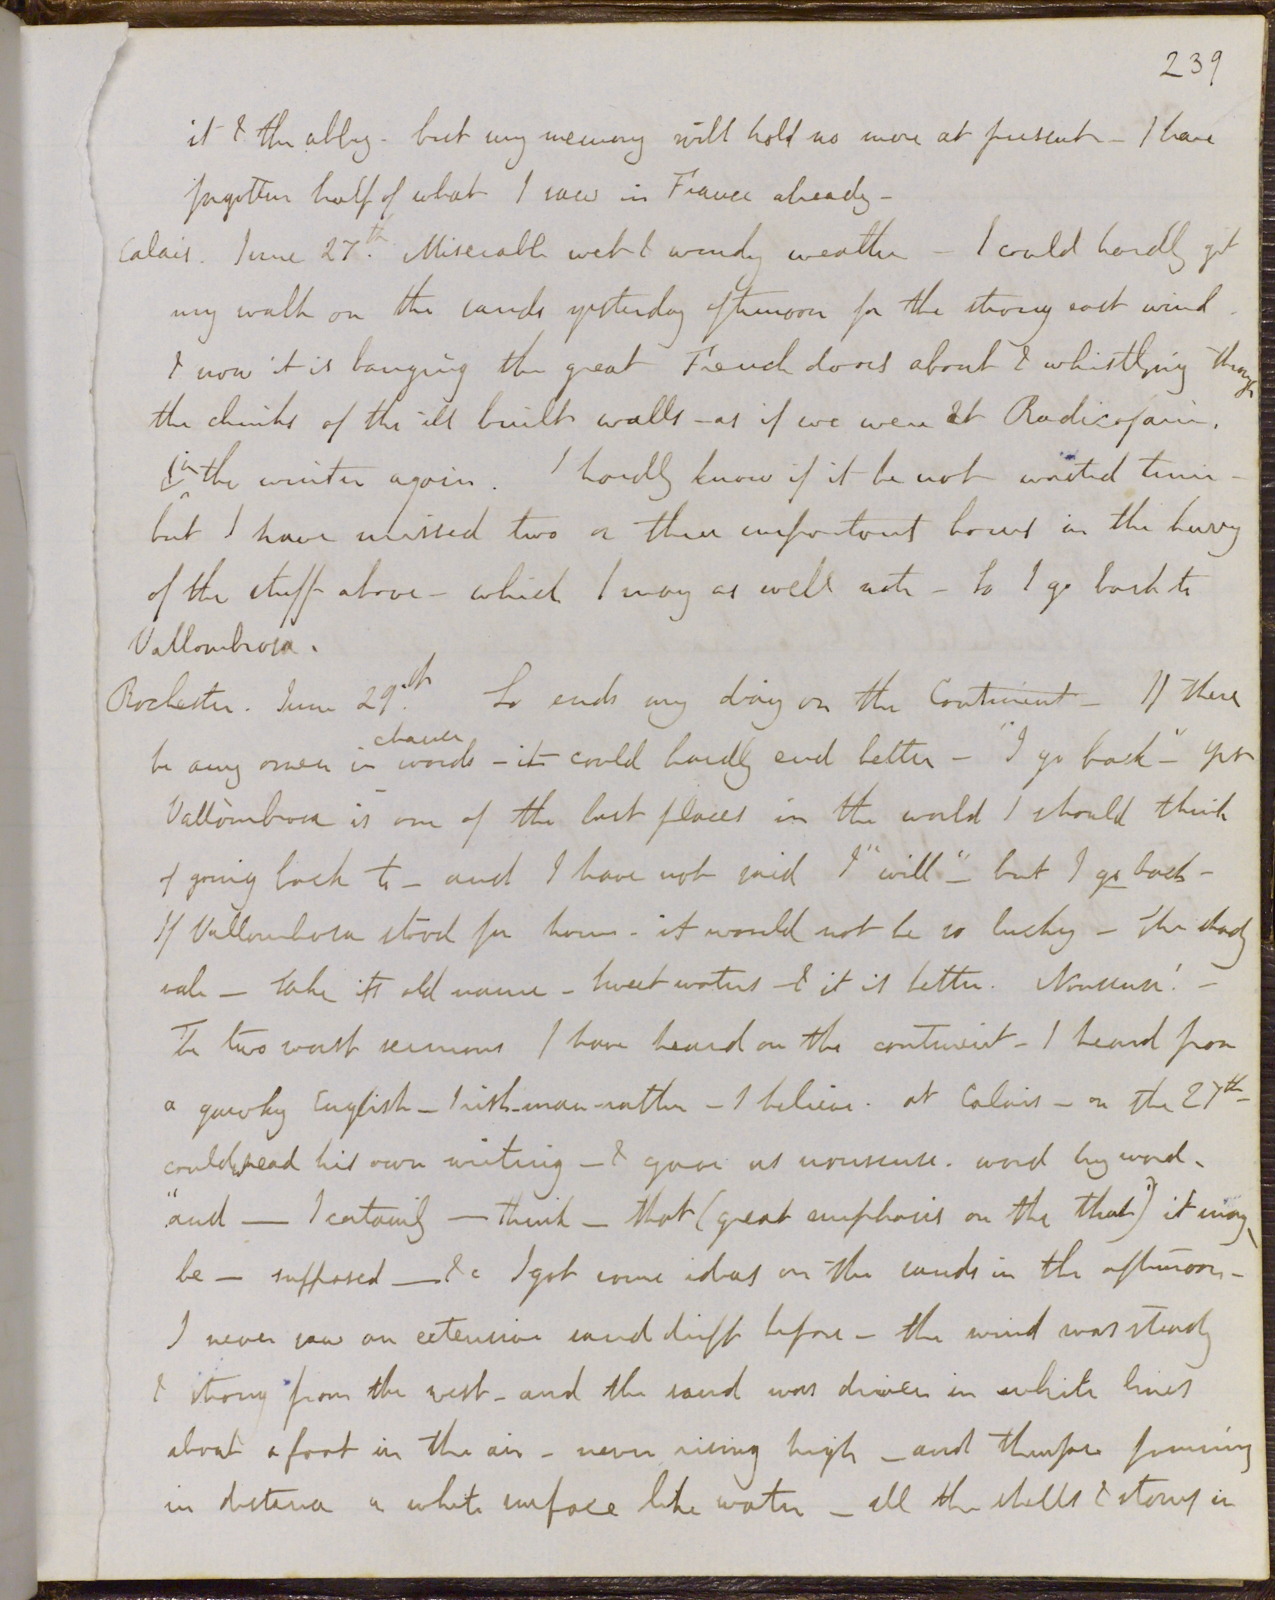 239
it & the abbey - but my memory will hold no more at present - I have
forgotten half of what I saw in France already -
Calais. June 27th. Miserable wet & windy weather - I could hardly get
my walk on the sands yesterday afternoon for the strong east wind.
& now it is banging the great French doors about & whistling through
the chinks of the ill built walls - as if we were at Radicofani.
in the winter again. I hardly know if it be not wasted time -
but I have missed two or three important hours in the hurry
of the stuff above - which I may as well note - So I go back to
Vallombrosa.
Rochester. June 29th. So ends my diary on the Continent - If there
be any omen in chance words - it could hardly end better - "I go back" - yet
Vallombrosa is one of the last places in the world I should think
of going back to - and I have not said I "will" - but I go back -
If Vallombrosa stood for home - it would not be so lucky - the shady
vale - take its old name - Sweet waters - & it is better. Nonsense! -
The two worst sermons I have heard on the continent - I heard from
a gawky English - Irish-man - rather - I believe. at Calais - on the 27th -
could read his own writing - & gave us nonsense. word by word.
"and — I certainly — think — that (great emphasis on the that") it may
be — supposed — &c I got some ideas on the sands in the afternoon -
I never saw an extensive sand drift before - the wind was steady
& strong from the west - and the sand was driven in white lines
about a foot in the air - never rising high - and therefore forming
in distance a white surface like water - all the shells & stones in